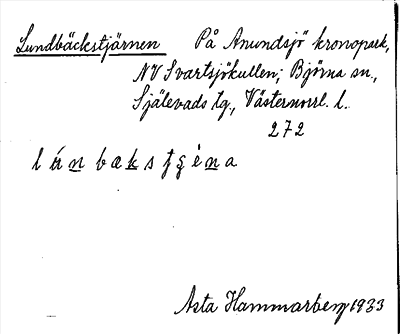 Lundbäckstjärnen På Anundsjö kronopark,
NV Svartsjökullen; Björna sn.,
Själevads tg., Västernorrl. l.
272
Asta Hammarberg 1933